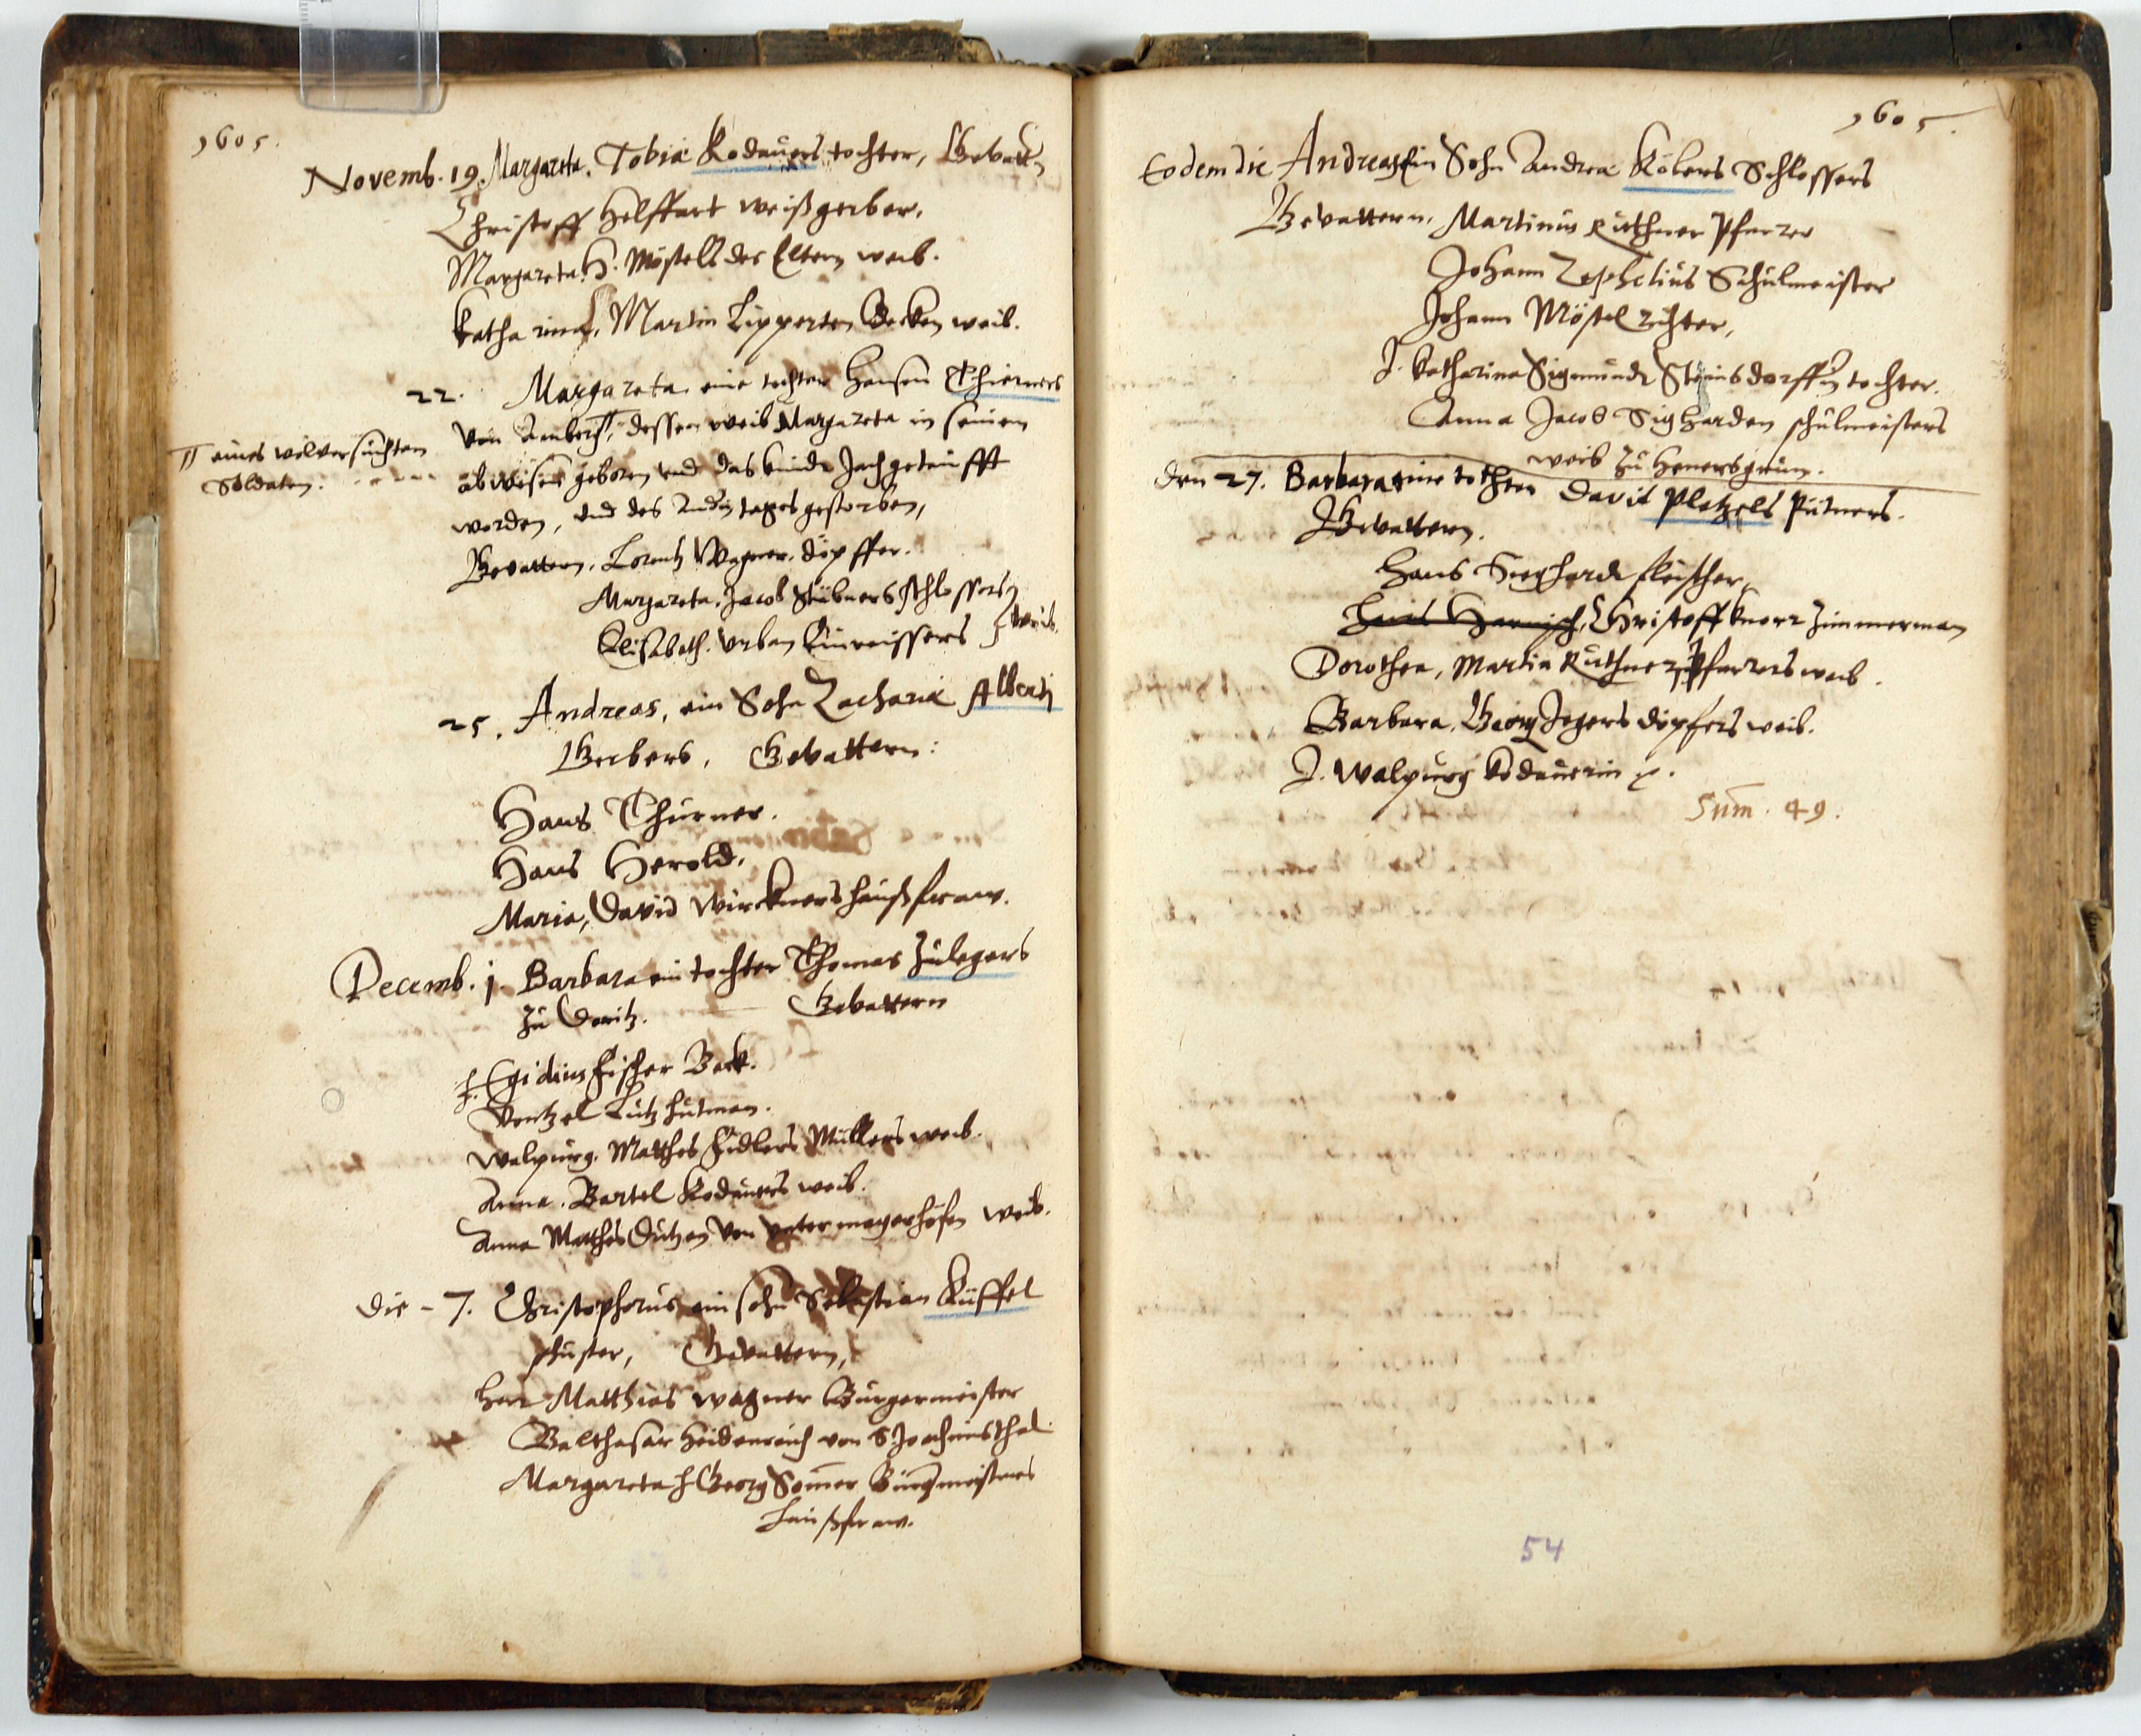 1605.
Novemb. 19. Margareta. Tobiæ Kodauers tochter, Gevattern
Christoff Helffart weißgerber.
Margareta. H. Möstells des Eltern weib.
Katharina, Martin Lipperten Becken weib.
22. Margareta eine tochter Hansen Thierners
von Amberg, dessen weib Margareta in seinem
∏ eines wolversuchten
Soldaten.
abwesen geboren und das kindt Jach getaufft
worden, und des andern tages gestorben,
Gevattern. Lorentz Wagner. döpffer.
Margareta. Jacob Stübners schlossers
Elisabeth. Urban weib.
25. Andreas, ein Sohn Zachariæ Alberti
Gerbers. Gevattern:
Hans Thürner.
Hans Herold.
Maria, David Wirckners haußfraw.
Decemb. 1. Barbara ein tochter Thomas Zulegers
zu Gevattern
H. Egidius Fischer Beck.
Wentzel Lutz hutman.
Walpurg. Matthes Fidlers Müllers weib.
Anna. Bartel Kodauers weib.
Anna Matthes von untermagerhöfen weib.
Die - 7. Christophorus ein sohn Sebastian Küffel
schuster, Gevattern,
Herr Matthias Wagner Burgermeister
Balthasar Heidenreich von S Joachimsthal
Margareta H Georg Som̄er Burgermeisters
haußfraw.
1605.
Eodem die Andreas ein Sohn Andreæ Köbers Schlossers
Gevattern. Martinus Ruthner Pfarrer
Johann Zephelius Schulmeister
Johann Möstel richter,
J. Katharina Sigmundt Steinsdorffers tochter.
Anna Jacob Sigharden schulmeisters
weib zu Henersgrün.
den 27. Barbara eine tochter David Pletzels Pütners.
Gevattern.
Hans Sieghardt fleischer,
Hans Harnisch, Christoff Knorr Zimmerman
Dorothea, Martin Ruthner Pfarrers weib.
Barbara. Georg Jegers döpfers weib.
J. Walpurg Kodauerin
Sum̄. 49.
54